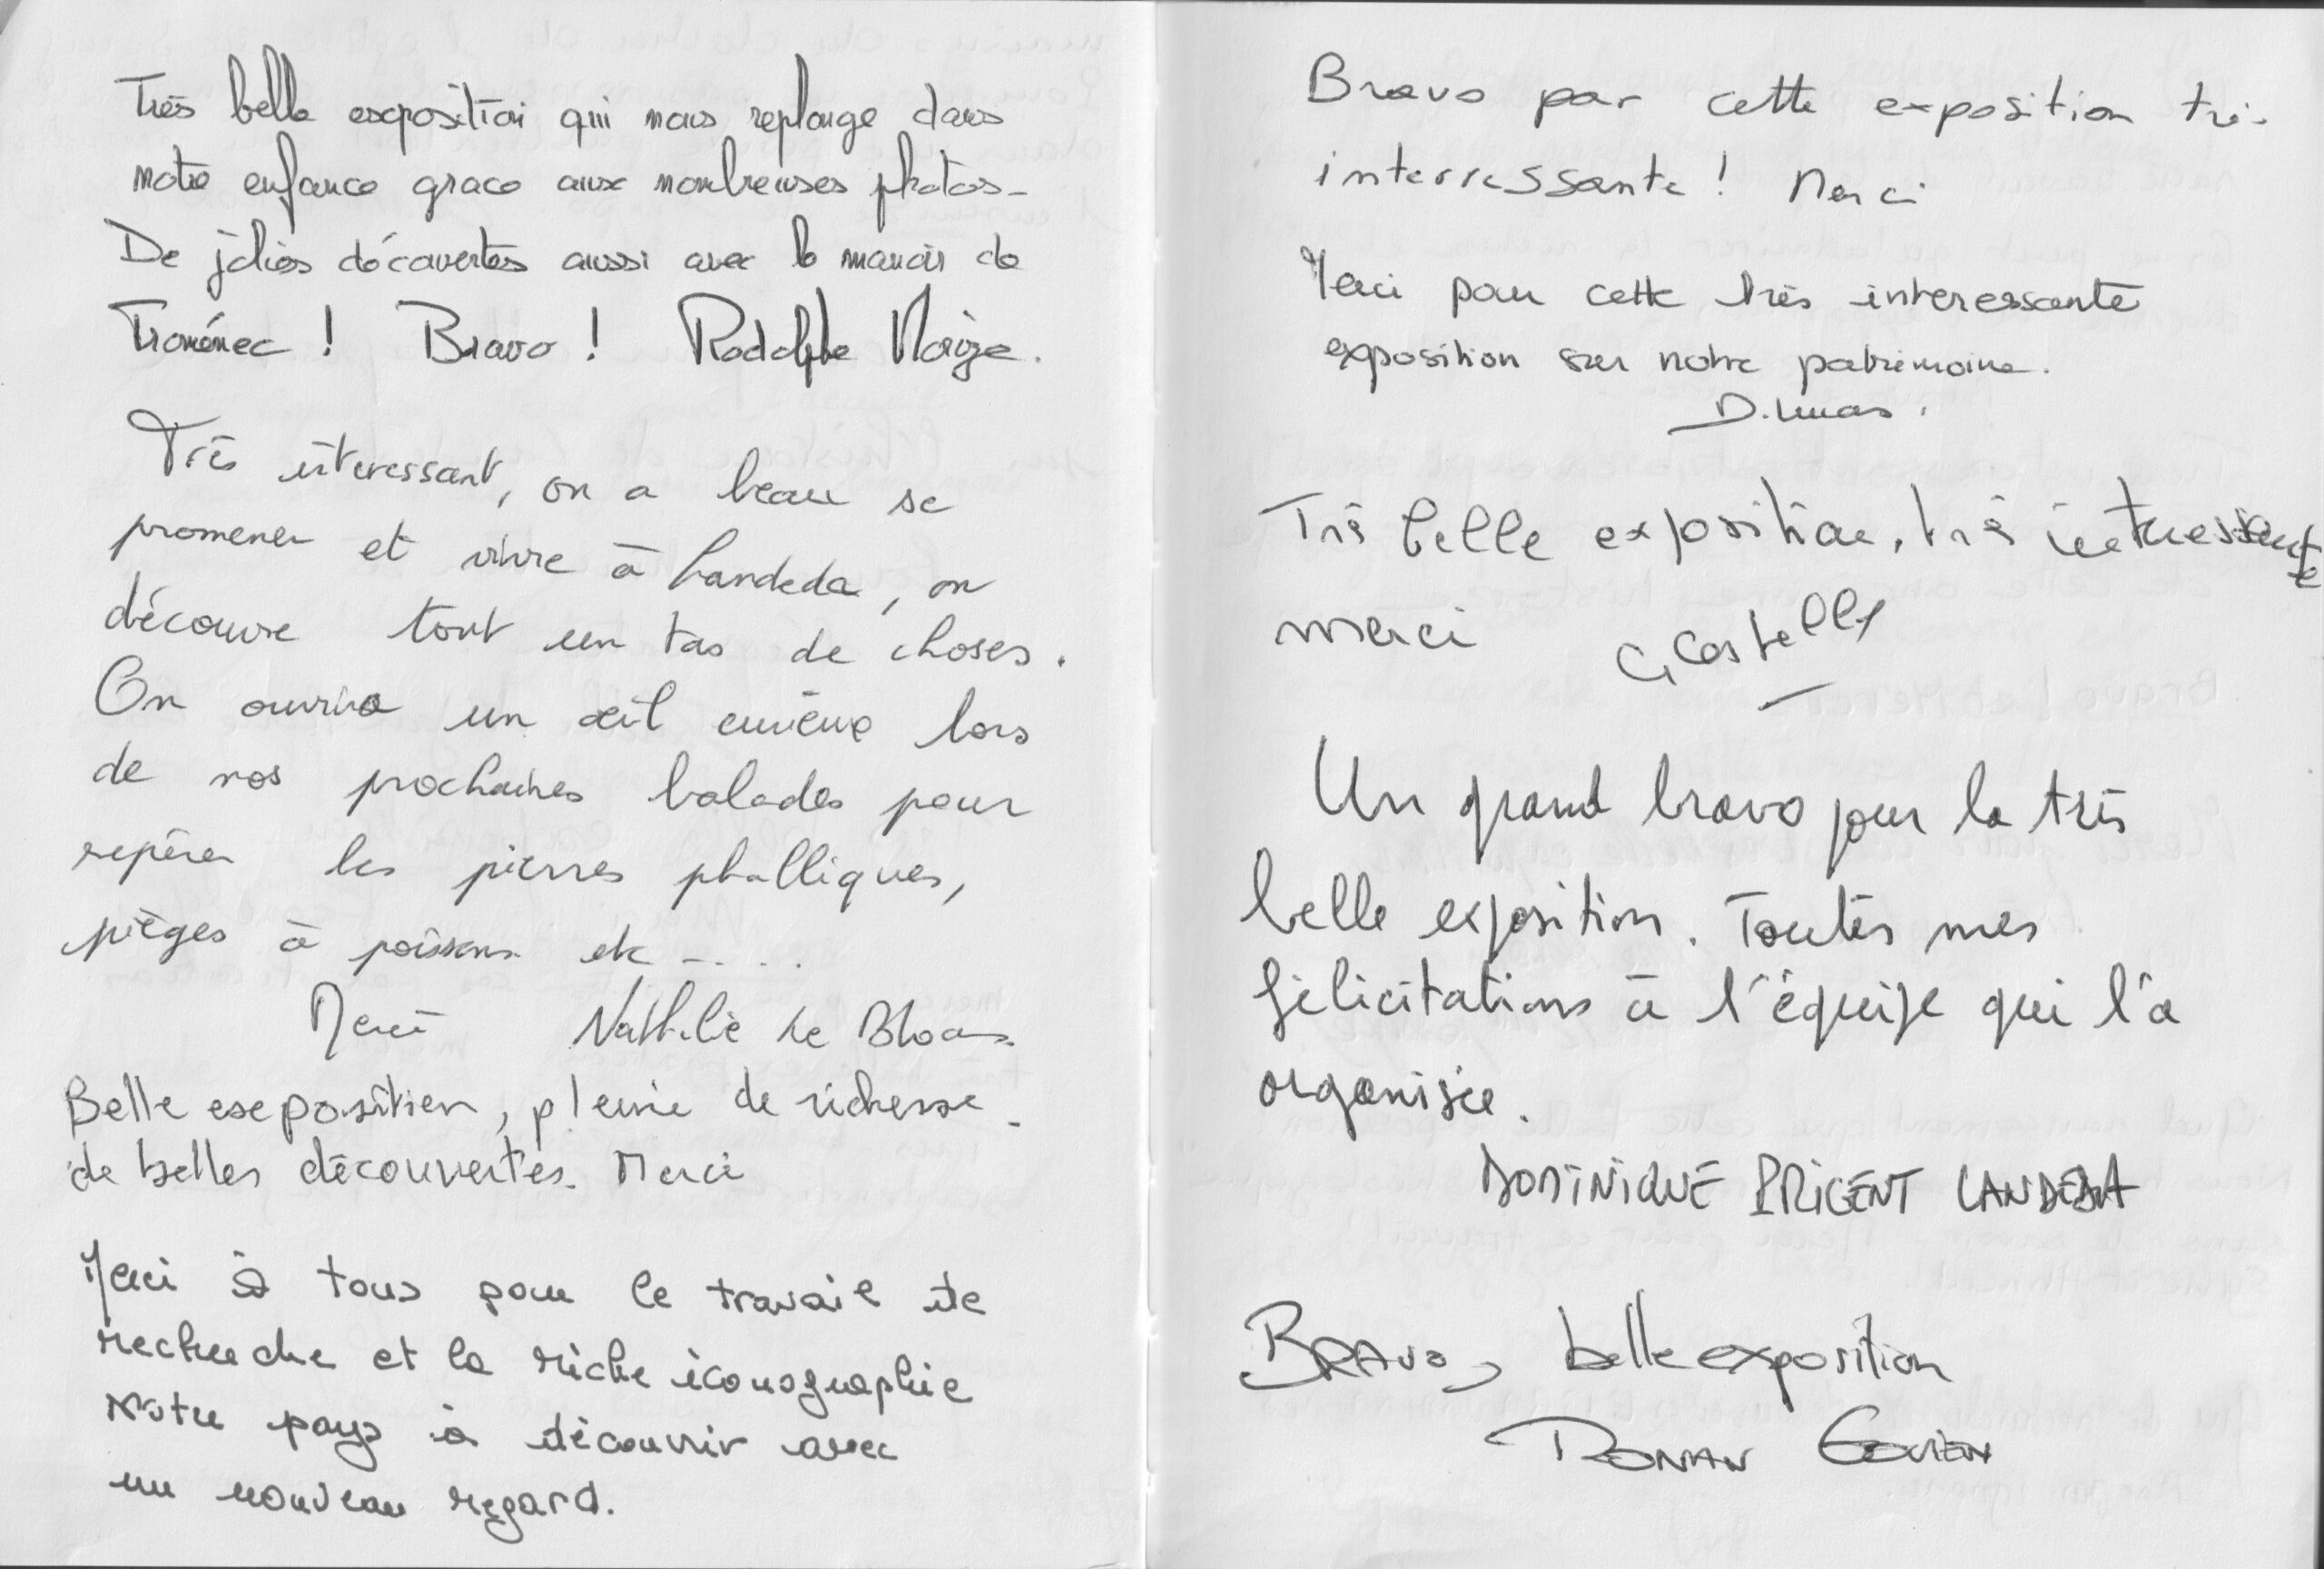 Très belle exposition qui nous replonge dans
notre enfance grace aux nombreuses photos -
De jolies découvertes aussi avec le manoir de
Troménec ! Bravo ! Rodolphe
Très interessant, on a beau se
promener et vivre à Landeda, on
découvre tout un tas de choses.
On ouvrira un œil
lors
de nos prochaines balades pour
repérer les pierres phalliques,
pièges à poissons etc - ...
Merci Nathalie Le
Belle exposition, pleine de richesse -
de belles découvertes. Merci
Merci à tous pour le travail de
recherche et la riche iconographie
Notre pays à découvrir avec
un nouveau regard.
Bravo par cette exposition très
interressante ! Merci
Merci pour cette très interessante
exposition sur notre patrimoine.
D. Lucas.
Très belle exposition, très intéressante
merci
Un grand bravo pour la très
belle exposition. Toutes mes
félicitations à l'équipe qui l'a
organisée.
DOMINIQUE PRIGENT LANDEDA
BRAVO, belle exposition
RONAN